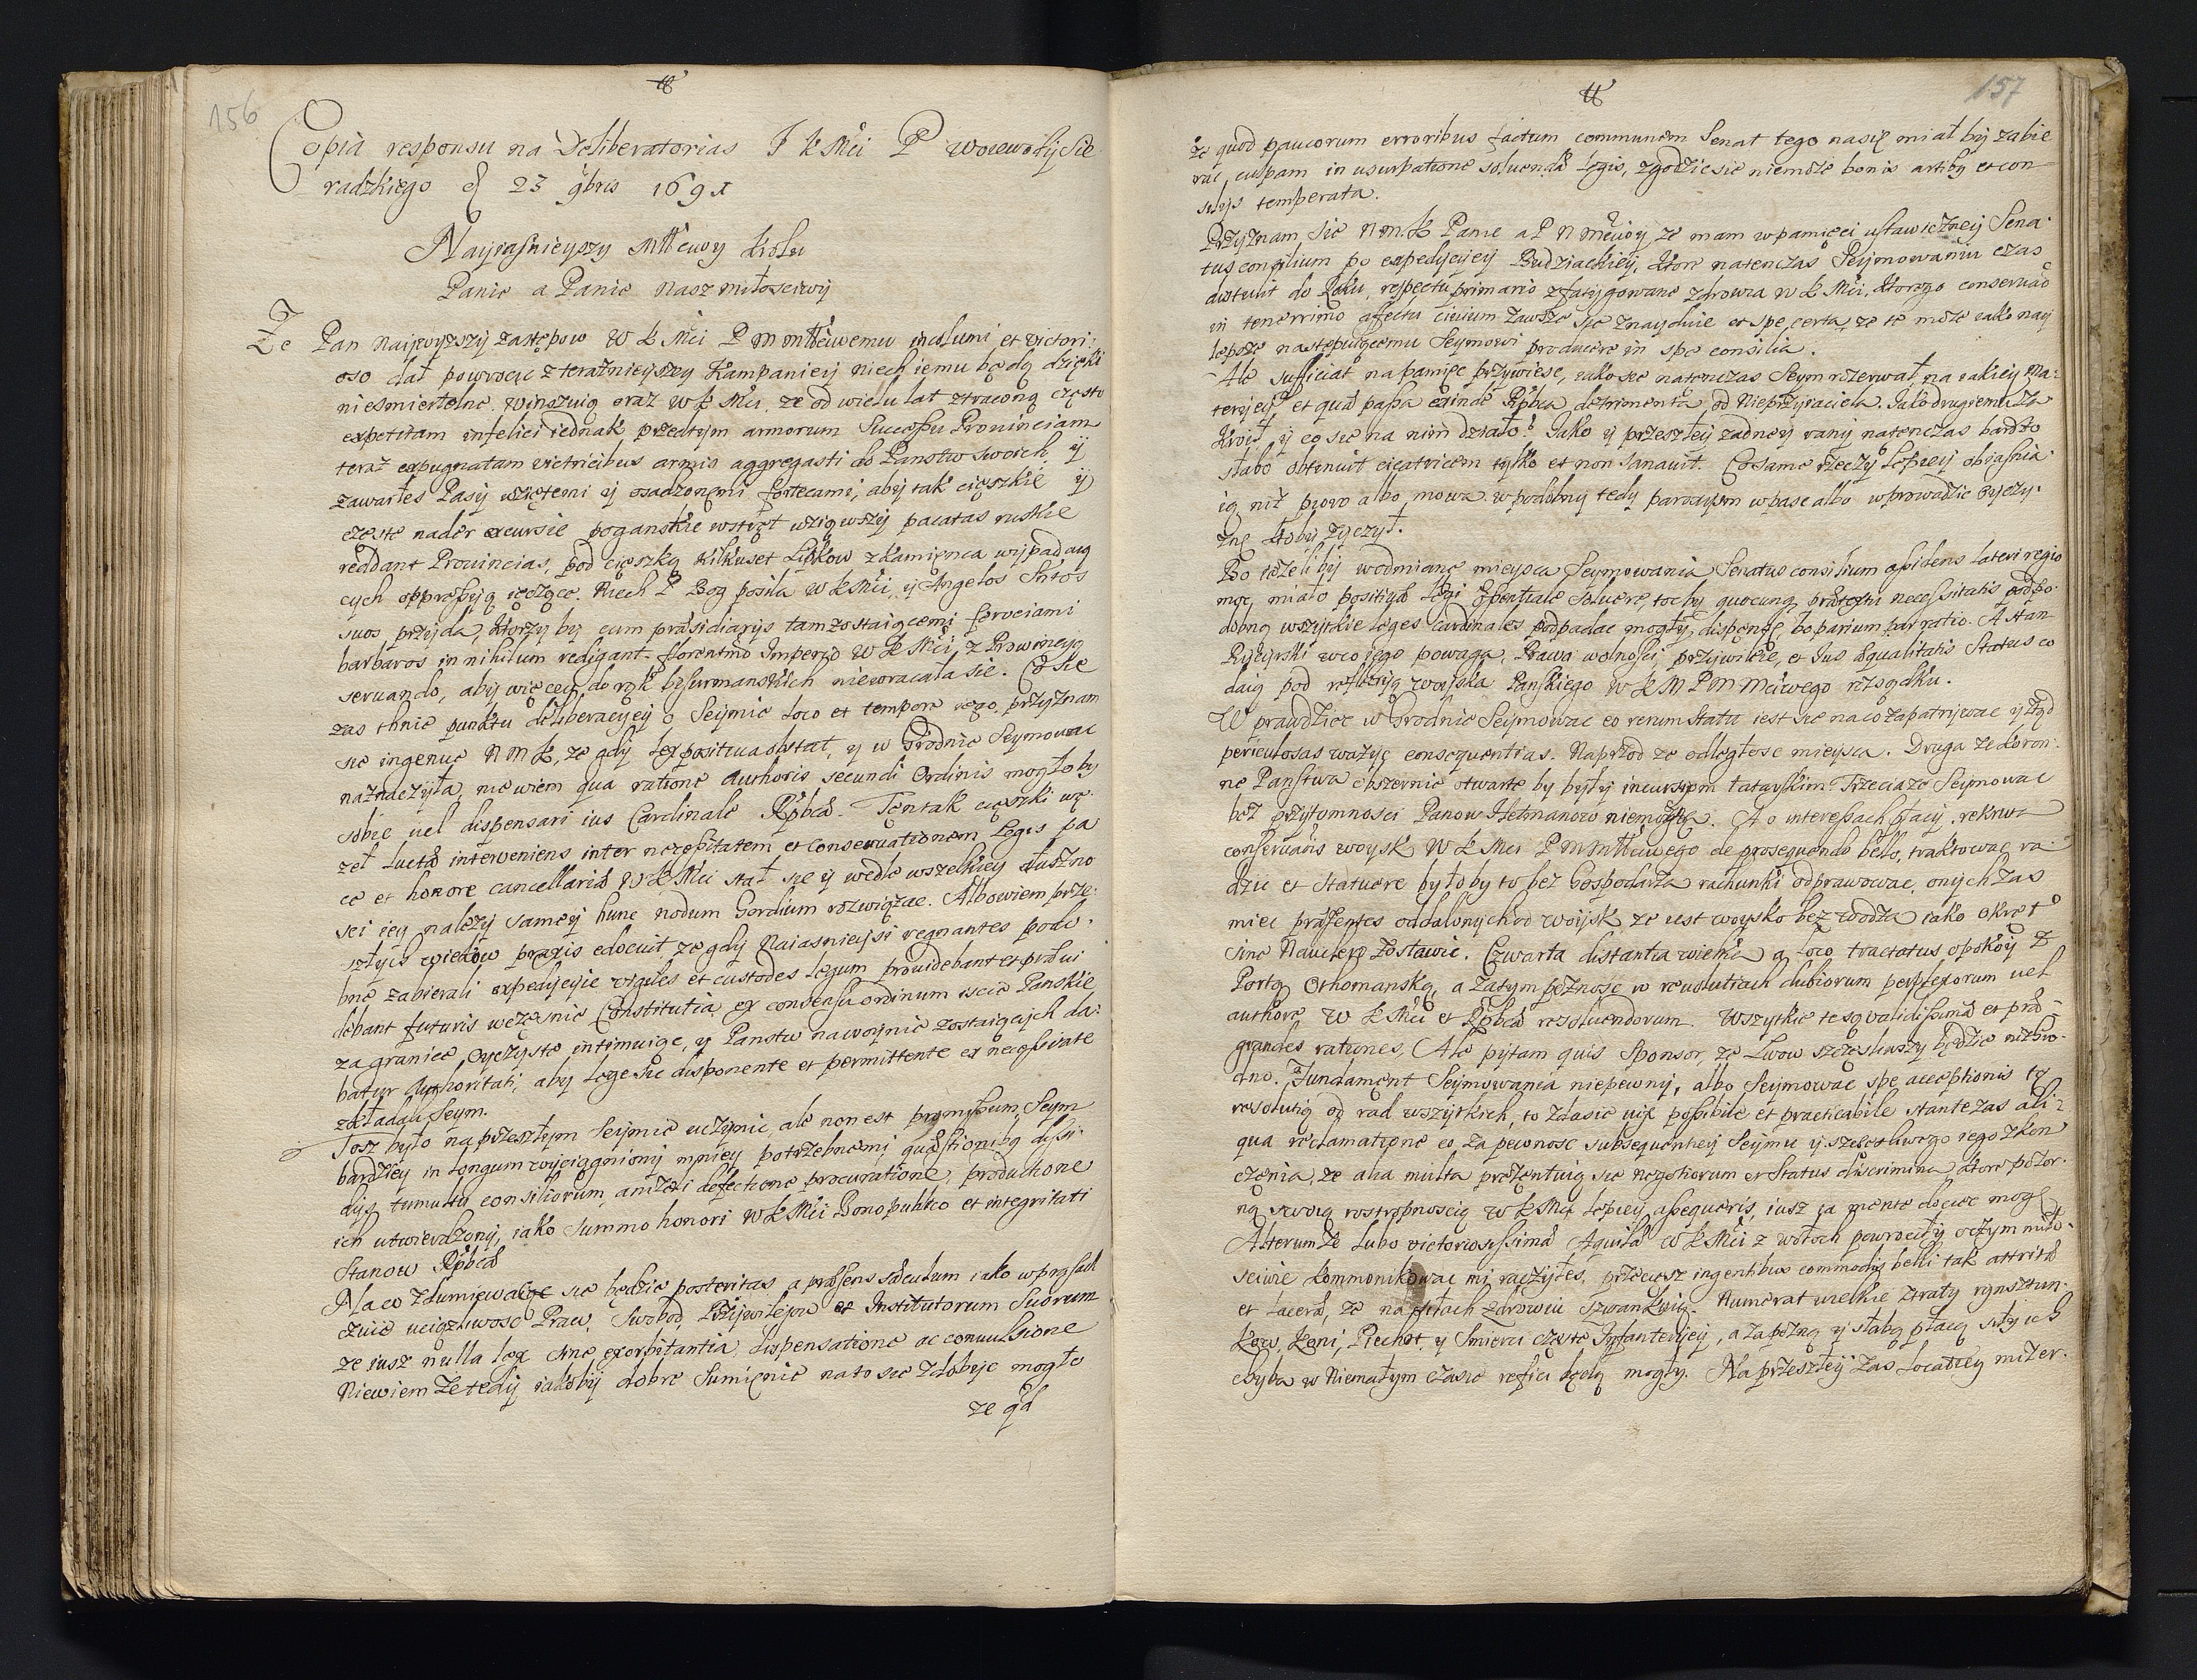 156
Copia responsu na Deliberatorias J K Mći P woiewody Sie
radzkiego d 23 9bris 1691
Nayiasnieyszy Mttćiwy Krolu
Panie a Panie Nasz miłosciwy
Ze Pan Naijwyzszy zastępow W K Mći P M mttćiwemu incolumi et victori:
oso dał powrocic z teraznieyszey Kampaniey niech iemu będą dzięki
niesmiertelne. Winszuię oraz W K Mći, ze od wielu lat ztraconą często
expetitam infelici iednak przedtym armorum Successu Prouinciam
teraz expugnatam victricibus armis aggregasti do Panstw swoich, ij
zawarłes Pasy wziętemi ij osadzonemi fortecami, abij tak cięszkie ij
częste nader excursie poganskie wstręt wziąwszij pacatas ruskie
reddant Prouincias, pod cięszką kilkuset Lipkow z Kamienca wijpadaią
cych oppressyą ięczące. Niech P Bog posila W K Mći, ij Angelos Snctos
suos przyda, ktorzy by cum præsidiarijs tam zostaiącemi ferociami
barbaros in nihilum redigant. florentmo Imperio W K Mći z Prowincyą
seruando, abij więcey do rąk bisurmanskich niewracała sie. Co sie
zas tknie punktu deliberacyey o Seijmie loco et tempore iego, przyznam
sie ingenue N M K, ze gdij lex positiua obstat, ij w Grodnie Seymowac
naznaczyła, nie wiem qua ratione Authoris secundi Ordinis mogłoby
sobie uel dispensari ius Cardinale Rpbcæ. Ten tak cięszki wę-
zeł luctæ interveniens inter necessitatem et conseruationem Legis pa
ce et honore cancellariæ W K Mći stał sie ij wedle wszelkiey słuszno
sci iey nalezij samey hunc nodum Gordium rozwiązac. Albowiem prze:
szłych wiekow praxis edocuit ze gdij Naiasnieijsi regnantes podo-
bne zabierali expedijcije vigiles et custodes legum prouidebant et præui
debant futuris wczesnie Constitutia ex consensu ordinum iscie Panskie
za granice Oyczyste intimuiąc, y Panstw na woynie zostaiących da:
batur Authoritati, aby lege sic disponente et permittente ex necessitate
zakładali Seym.
Tosz było na przeszłym Seijmie uczynic, ale non est promissum, Seym
bardziey in longum wijciągniony mniey potrzebnemi quæstionibq dissi-
dijs tumultu consiliorum, anizeli defectione procuratione, productione
ich utwierdzony, iako Summo honori W K Mći Bono publico et integritati
Stanow Rpbcæ
Na co zdumiewac sie będzie posteritas a præsens sæculum iako w prassach
czuie uciązliwosc Praw, Swobod, Przijwileiow et Institutorum Suorum
ze iusz nulla lex sine exorbitantia, dispensatione ac conuulsione
Niewiem Ze tedij iakobij dobre Sumienie na to sie zdobyc mogło
ze qd
157
ze quod paucorum erroribus factum communem Senat tego nasię miał bij zabie
rac, culpam in usurpatione soluendæ legis, zgodzic sie niemoze bonis artibq et con
silijs temperata.
Przijznam sie N M K Panie a P N Mćiwy ze mam w pamięci ustawiczney Sena-
tus consilium po expedijcijey Budziackiey, ktore natenczas Seijmowaniu czas
distulit do Roku, respectu primario zfatijgowane zdrowia W K Mći, ktorego conseruaõ
in tenerrimo affectu ciuium zawsze sie znayduie et spe certa, ze te moze iako nay
lepsze następuiącemu Seijmowi producere in spe consilia.
Ale sufficiat na pamięc przywiesc, iako sie natenczas Seym rozerwał, na iakieij ma:
terijeij? et qua passa exinde Rpbca detrimenta od Nieprzijiaciela. Jako drugiemu za
ij co sie na nim działo? Jako ij przeszłeij zadney ranij natenczas bardzo
słabo obtinuit cicatricem tijlko et non sanauit. Co same rzeczij lepieij obiasnia-
ią niz piero albo mowa. w podobny tedij paroxijsm wpasc albo wprowadzic oyczy-
znę ktoby zyczył.
Bo iezeli bij wodmianę mieijsca Seijmowania Senatus consilium assidens lateri regio
moc miało positiuæ legi essentiale soluere, toc by quocunq prætextu necessitatis podo-
dobną wszijtkie leges Cardinales podpadac mogły dispensę, bo parium par ratio. A stan
Rijcijrski wcoiego powaga, Prawa wolnosci, przijwileie, et Ius Aequalitatis Status co
daią pod reflexiją woijska Panskiego W K M P M Mćiwego rozsądku.
W prawdzie w Grodnie Seijmowac eo rerum statu iest sie na co zapatrijwac ij ztąd
periculosas wazyc consequentias. Naprzod ze odległosc mieijsca. Druga ze koron
ne Panstwa obszernie otwarte by byłij incursijom tatarskim. Trzecia ze Seijmowac
bez przijtomnosci Panow Hetmanow niemozna. A o interessach płacij, rekrut
conseruaõis woysk W K Mći P M Mttćiwego de prosequendo bello, traktowac ra-
dzic et statuere byłoby to bez Gospodarza rachunki odprawowac, onych zas
miec præsentes oddalonijch od woijsk ze iest woysko bez wodza iako okręt
sine Nauclero zostawic. Czwarta distantia wielka a loco tractatus o pokoij z
Portą Othomanską, a zatym poznosc w reuolutiach dubiorum perplexorum uel
authore W K Mći et Rpbcæ resoluendorum. Wszytkie te są validissimæ et præ-
grandes rationes, Ale pijtam quis Sponsor, ze Lwow szczesliwszy będzie niz Gro-
dno. Fundament Seijmowania niepewnij, albo Seijmowac spe acceptionis tę
resolutią od rad wszijtkich, to zdasie mije possibile et practicabile stante zas ali:
qua reclamatione co, za pewnosc subsequentiey Seijmu ij szczesliwego iego zkon
czenia, ze alia multa prezentuią sie negotiorum et Status discrimina ktore pozor-
ną swoią rostropnoscią W K Mći lepiey assequeris, iusz ia mente docere mogę
Alterum Ze lubo victoriosissimæ Aquilæ W K Mći z wołoch powrociłij oczym miło-
sciwie kommonikowac mi raczyłes, przeciesz ingentibus commodis belli tak attritæ
et laceræ, ze na siłach zdrowiu szwankuią. Numerat wielkie ztraty rynsztun-
kow, Koni, Piechot, ij Smierci częste Infanterijey, a zapozną ij słabą płacą siły ich
chyba w Niemałym czasie refici będą mogły. Na przeszłeij zas locatiey mizer-